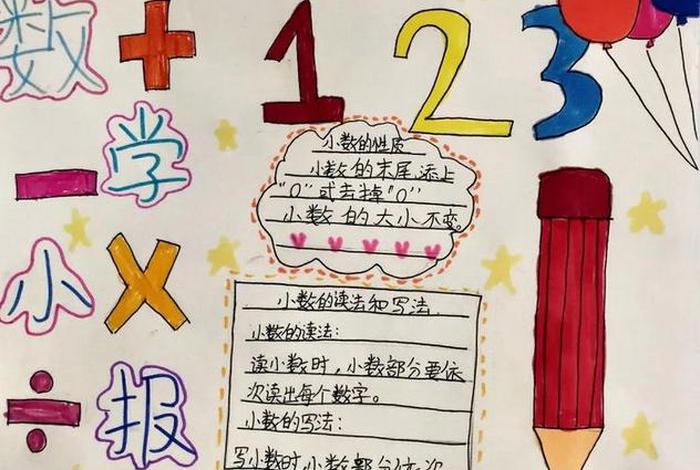 数 + 1 2 3
- 学
小 ×
÷ 报
小数的性质
小数的末尾添上
“0”或去掉“0”
小数的大小不变。
小数的读法和写法
小数的读法:
读小数时,小数部分要依
次读出每个数字。
小数的写法:
写小数时,小数部分依次